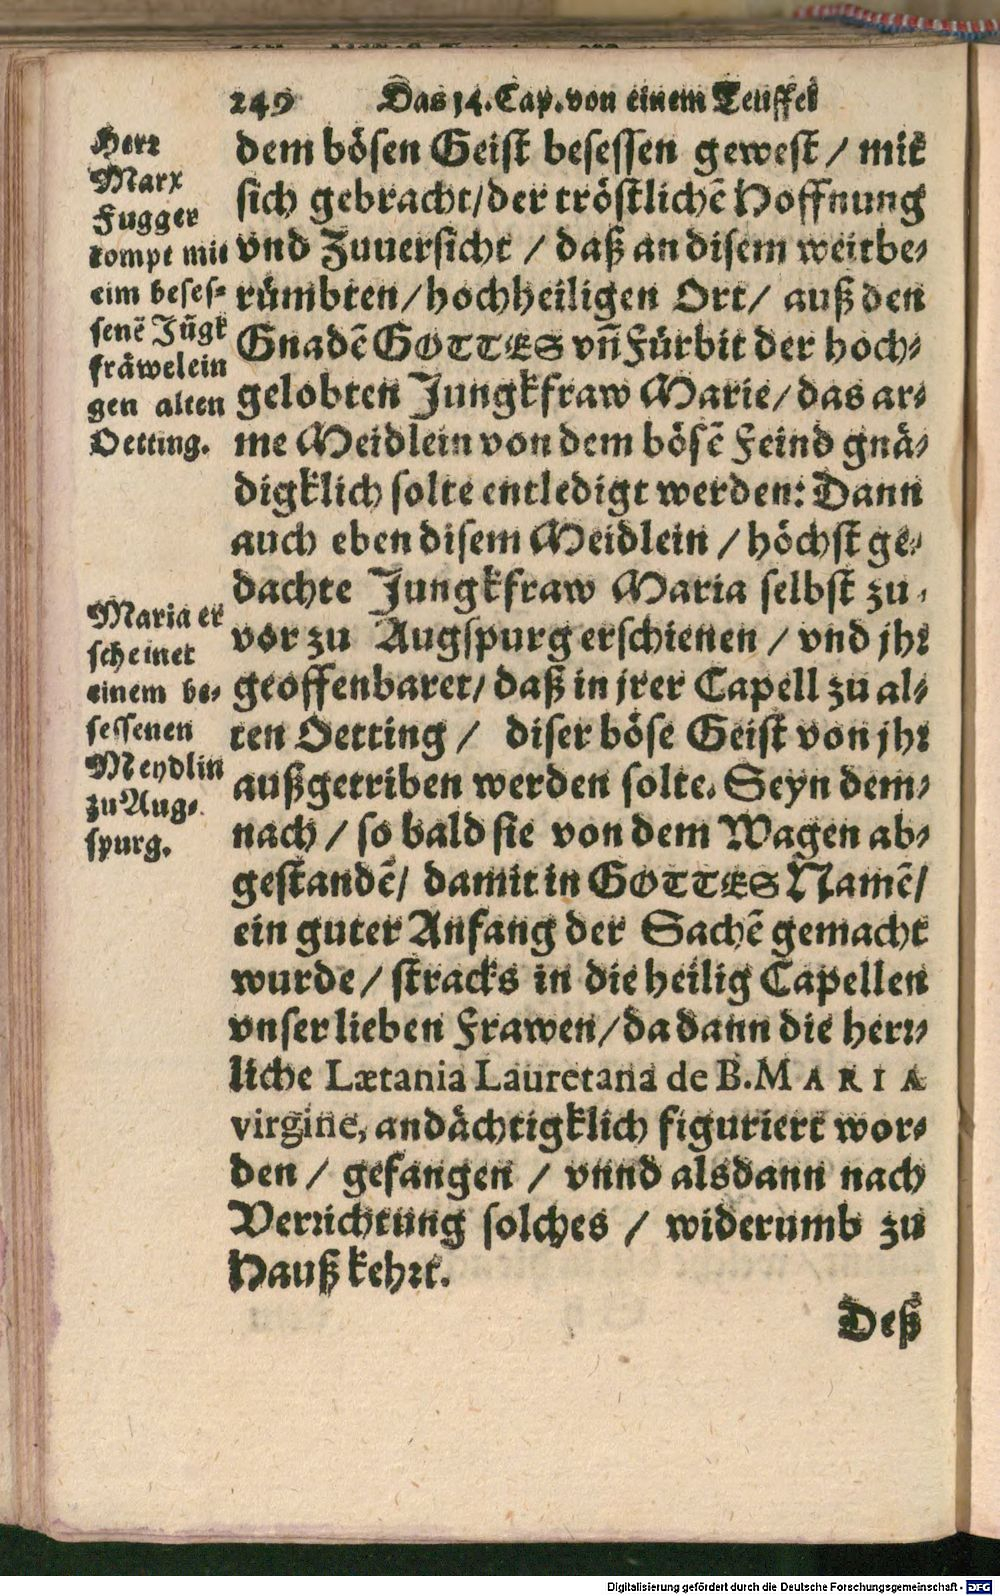 249 Das 14. Cap. von einem Teuffel
Herr
Marx
Fugger
kompt mit
eim beses⸗
senē Jūgk
fräwelein
gen alten
Oetting.
Maria er
scheinet
einem be⸗
sessenen
Meydlin
zu Aug⸗
spurg.
dem bösen Geist besessen gewest / mit
sich gebracht / der tröstlichē Hoffnung
vnd Zuuersicht / daß an disem weitbe⸗
rümbten / hochheiligen Ort / auß den
Gnadē GOTTES vn̄ Fürbit der hoch⸗
gelobten Jungkfraw Marie / das ar⸗
me Meidlein von dem bösē Feind gnä⸗
digklich solte entledigt werden: Dann
auch eben disem Meidlein / höchst ge⸗
dachte Jungkfraw Maria selbst zu⸗
vor zu Augspurg erschienen / vnd jhr
geoffenbaret / daß in jrer Capell zu al⸗
ten Oetting / diser böse Geist von jhr
außgetriben werden solte. Seyn dem⸗
nach / so bald sie von dem Wagen ab⸗
gestandē / damit in GOTTES Namē /
ein guter Anfang der Sachē gemacht
wurde / stracks in die heilig Capellen
vnser lieben Frawen / da dann die herr⸗
liche Lætania Lauretana de B. MARIA
virgine, andächtigklich figuriert wor⸗
den / gesangen / vnnd alsdann nach
Verrichtung solches / widerumb zu
Hauß kehrt.
Deß
Digitalisierung gefördert durch die Deutsche Forschungsgemeinschaft - DFG